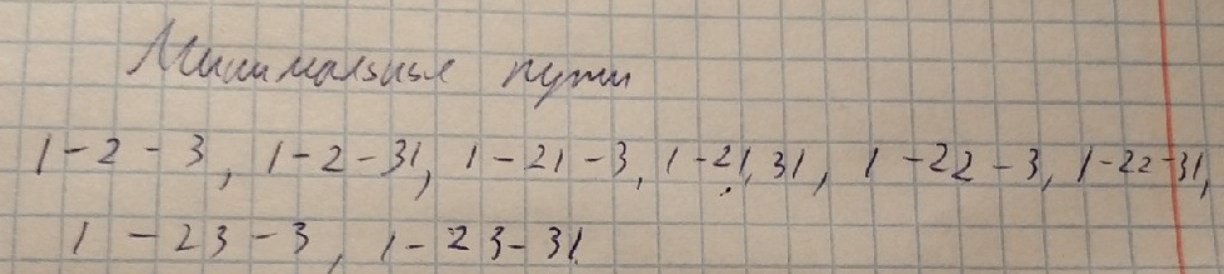 Минимальные пути
1-2-3, 1-2-31, 1-21-3, 1-21, 31, 1-22-3, 1-22-31,
1-23-3, 1-23-31